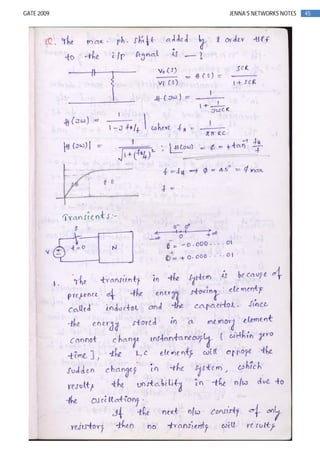 GATE 2009 JENNA'S NETWORKS NOTES 45
Q. The max. ph. shift added by I order HPF
to the i/p signal is — ?
Vo(s) / Vi(s) = H(s) = SCR / 1 + SCR
H(jω) = 1 / 1 + 1/jωCR
H(jω) = 1 / 1 - j fL/f where fL = 1 / 2πRC
|H(jω)| = 1 / √1+(fL/f)² ; ∠H(ω) = φ = + tan⁻¹ fL/f
f = fL ⇒ φ = 45° = φ max
f =
Transients :-
S
V t=0 N
0⁻ 0⁺
0
0⁻ = -0.000....01
0⁺ = +0.000....01
1. The transients in the system is because of
presence of the energy storing elements
called inductor and the capacitor. Since
the energy stored in a memory element
cannot change instantaneously ( within zero
time ], the L,C elements will oppose the
sudden changes in the system, which
results the unstability in the n/w due to
the oscillations.
If the next n/w consists of only
resistors then no transients will results